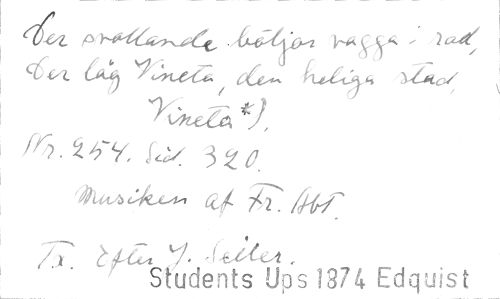 Der svallande böljor vagga i rad,
Der låg Vineta, den heliga stad,
Vineta*).
Nr. 254. Sid. 320.
Musiken af Fr. Abt.
Tx. Efter J. Seiler.
Students Ups 1874 Edquist